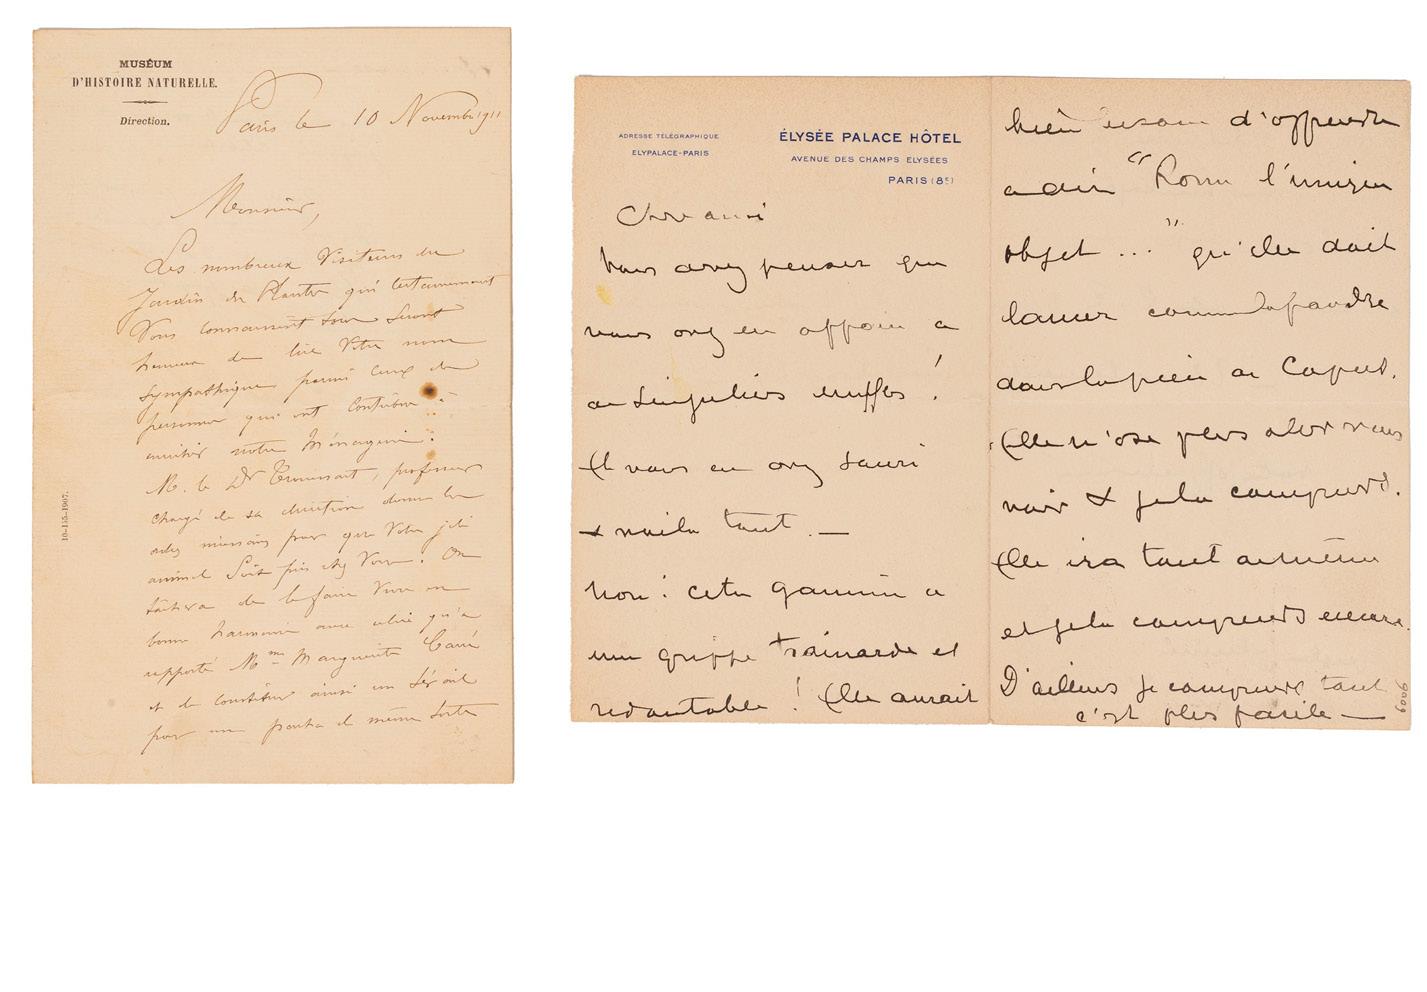 MUSÉUM
D'HISTOIRE NATURELLE.
Direction.
Paris le 10 Novembre 1911
Monsieur,
Les nombreux Visiteurs du
Jardin des Plantes qui certainement
Vous connaissent tous seront
heureux de lire Votre nom
sympathique parmi ceux des
personnes qui ont contribué à
enrichir notre Ménagerie.
M. le Dr Trouessart, professeur
chargé de sa direction donne les
ordres nécessaires pour que Votre joli
animal soit pris chez Vous. On
tâchera de le faire Vivre en
bonne harmonie avec celui qu'a
rapporté Mme Marguerite Carré
et de constituer ainsi un sérail
pour une panthère de même sorte
10-155-1907.
ADRESSE TÉLÉGRAPHIQUE
ELYPALACE-PARIS
ÉLYSÉE PALACE HÔTEL
AVENUE DES CHAMPS ELYSÉES
PARIS (8E)
Cher ami
Vous avez penser que
vous avez eu affaire à
de singuliers mufles !
Et vous en avez souri
& voila tout. —
Non : cette gamine a
une grippe trainarde et
redoutable ! Elle aurait
bien besoin d'apprendre
a dire "Rome l'unique
objet ... " qu'elle doit
lancer comme la foudre
dans la pièce de Capus.
Elle n'ose plus aller vous
voir & je la comprends.
Elle ira tout de même
et je la comprends encore.
D'ailleurs je comprends tout
c'est plus facile —
9009